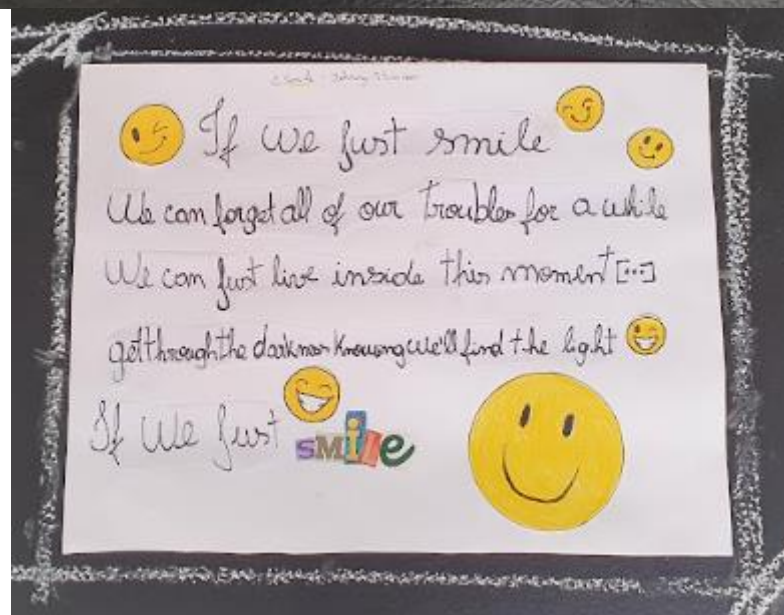 If we just smile
We can forget all of our troubles for a while
We can just live inside this moment [...]
get through the darkness knowing we'll find the light
If we just smile